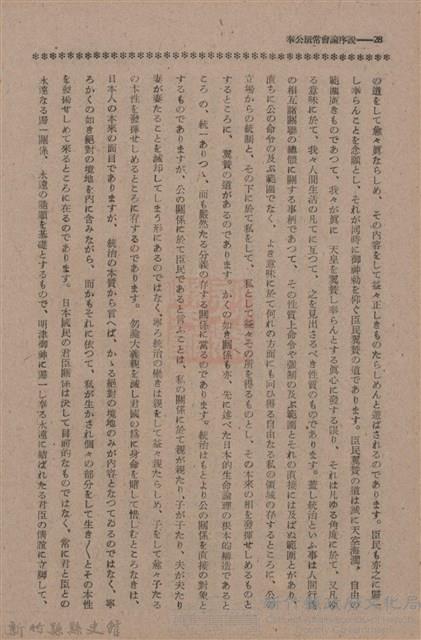 奉公壇常會論序説——28
の道をして愈々眞ならしめ、その内容をして益々正しきものたらしめんと遊ばされるのであります。臣民も亦之に歸
し奉らんことを念願とし、それが同時に御神勅を仰ぐ臣民翼贊の道であります。臣民翼贊の道は誠に天空海濶、自由
範圍廣きものであつて、我々が眞に 天皇を翼贊し奉らんとする眞心に發する限り、それは凡ゆる角度に於て、又凡ゆ
る意味に於て、我々人間生活の凡てに亙つて、之を見出さるべき性質のものであります。蓋し統治といふ事は人間行爲
の相互關聯の總體に關する事柄であつて、その性質上命令や強制の及ぶ範圍とそれの直接には及ばぬ範圍とがあり、
直ちに公の命令の及ぶ範圍でなく、よき意味に於て何れの方面にも伺ひ得る自由なる私の領域の存するところに、公の
立場からの統制と、その下に於て私をして、私として益々その所を得るものとし、その本來の相を發揮せしめるものと
するところに、翼贊の道があるのであります。かくの如き關係も亦、先に述べた日本的生命論理の根本的構造であると
ころの、統一ありつゝ、而も嚴然たる分義の存する關係に當るのであります。統治はもとより公の關係を直接の對象と
するものでありますが、公の關係に於て臣民であると言ふことは、私の關係に於て親が親たり、子が子たり、夫が夫たり
妻が妻たることを滅却してしまう形にあるのではなく、寧ろ統治の働きは親をして益々親たらしめ、子をして愈々子たる
の本性を發揮せしめるところに存するのであります。勿論大義親を滅し君國の爲に身命を賭して惜しむところなきは、
日本人の本來の面目でありますが、統治の本質から言へば、かゝる絶對の境地のみが内容となつてゐるのではなく、寧
ろかくの如き絶對の境地を内に含みながら、而かもそれに依つて、私が生かされ個々の部分をして生き〱とその本性
を發揚せしめて來るところに在るのであります。日本國民の君臣關係は決して目時的なものではなく、常に君と臣との
永遠なる歸一關係、永遠の隨順を基礎とするもので、明津御神に歸一し奉る永遠に結ばれたる君臣の情誼に立脚して、
新竹縣縣史館
文化局